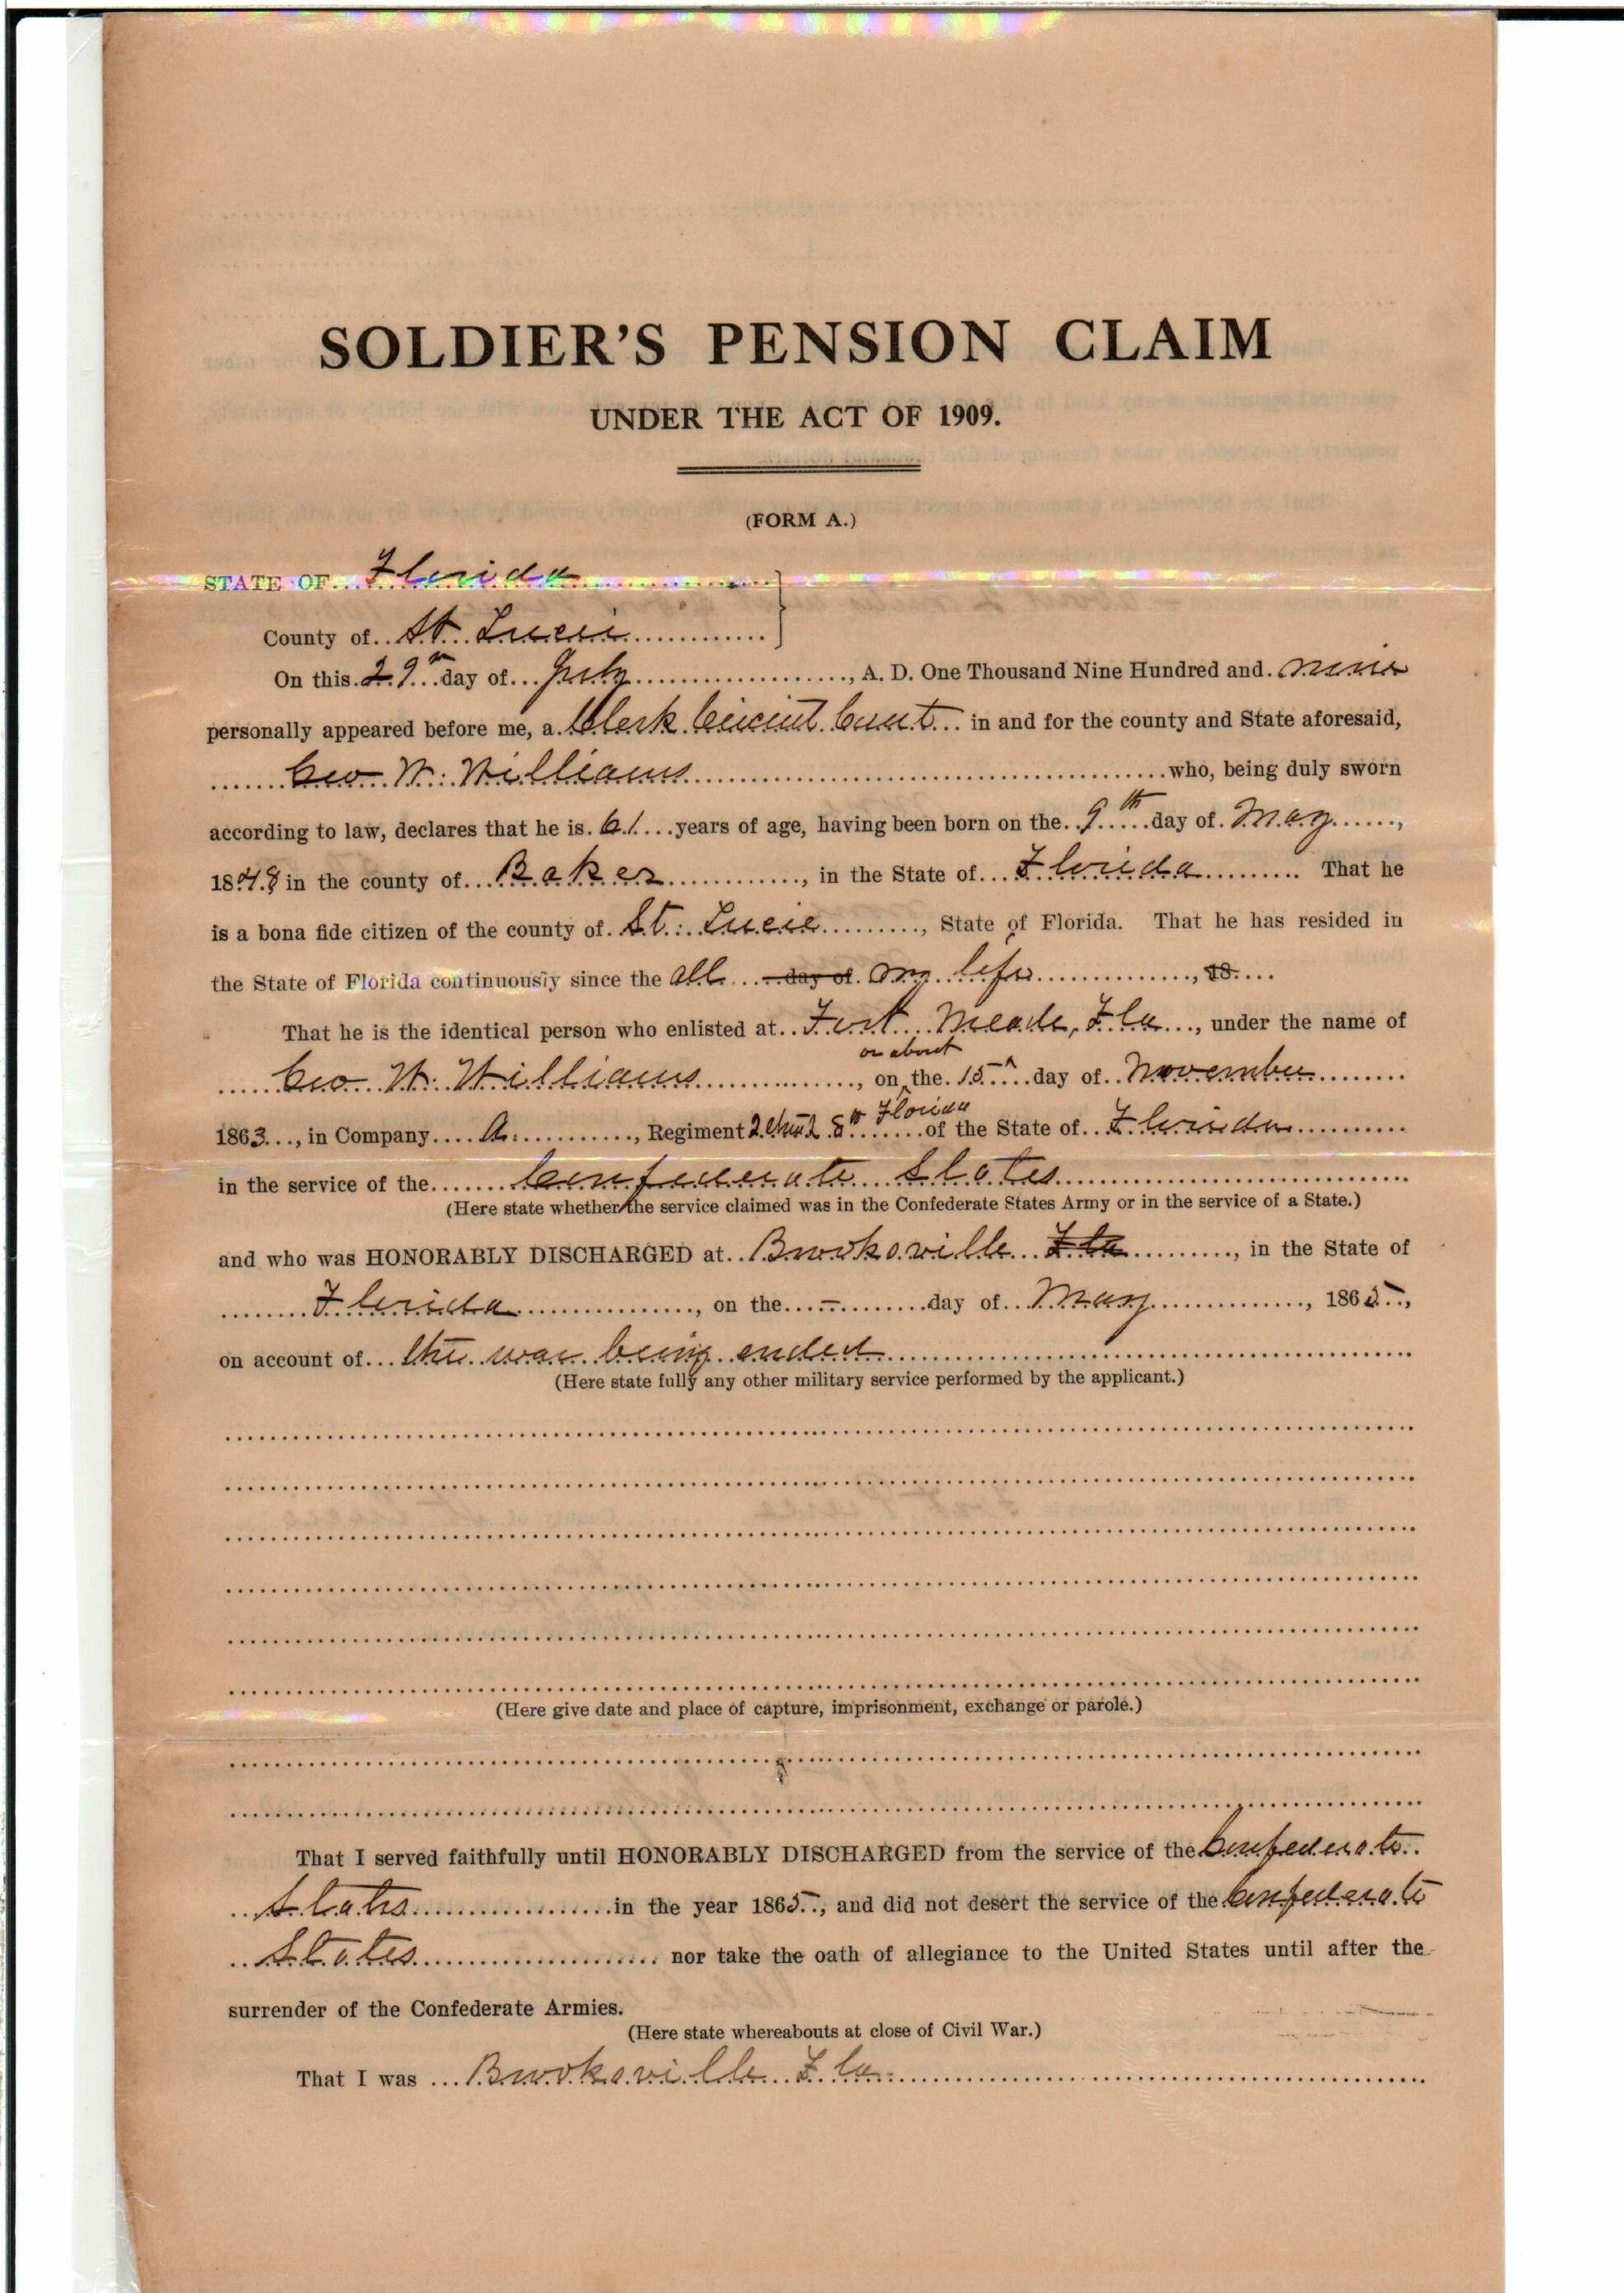 SOLDIER'S PENSION CLAIM
UNDER THE ACT OF 1909.
(FORM A.)
STATE OF Florida
County of St. Lucie
On this 29th day of July, A. D. One Thousand Nine Hundred and nine
personally appeared before me, a Clerk Circuit Court in and for the county and State aforesaid,
Geo W. Williams who, being duly sworn
according to law, declares that he is 61 years of age, having been born on the 9th day of May,
1848 in the county of Baker, in the State of Florida That he
is a bona fide citizen of the county of St. Lucie, State of Florida. That he has resided in
the State of Florida continuously since the all day of my life, 18
That he is the identical person who enlisted at Fort Meade, Fla, under the name of
or about
Geo W. Williams, on the 15th day of November
Florida
1863, in Company A., Regiment 8th of the State of Florida
in the service of the Confederate States
(Here state whether the service claimed was in the Confederate States Army or in the service of a State.)
and who was HONORABLY DISCHARGED at Brooksville Fla, in the State of
Florida, on the – day of May, 1865,
on account of the war being ended
(Here state fully any other military service performed by the applicant.)
(Here give date and place of capture, imprisonment, exchange or parole.)
That I served faithfully until HONORABLY DISCHARGED from the service of the Confederate
States in the year 1865, and did not desert the service of the Confederate
States nor take the oath of allegiance to the United States until after the
surrender of the Confederate Armies.
(Here state whereabouts at close of Civil War.)
That I was Brooksville Fla